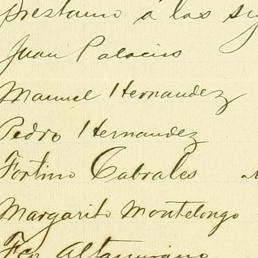 prestamo á los
Juan Palacios
Manuel Hernandez
Pedro Hernandez
Fortino Cabrales
Margarito Montelongo
Fco Altamirano